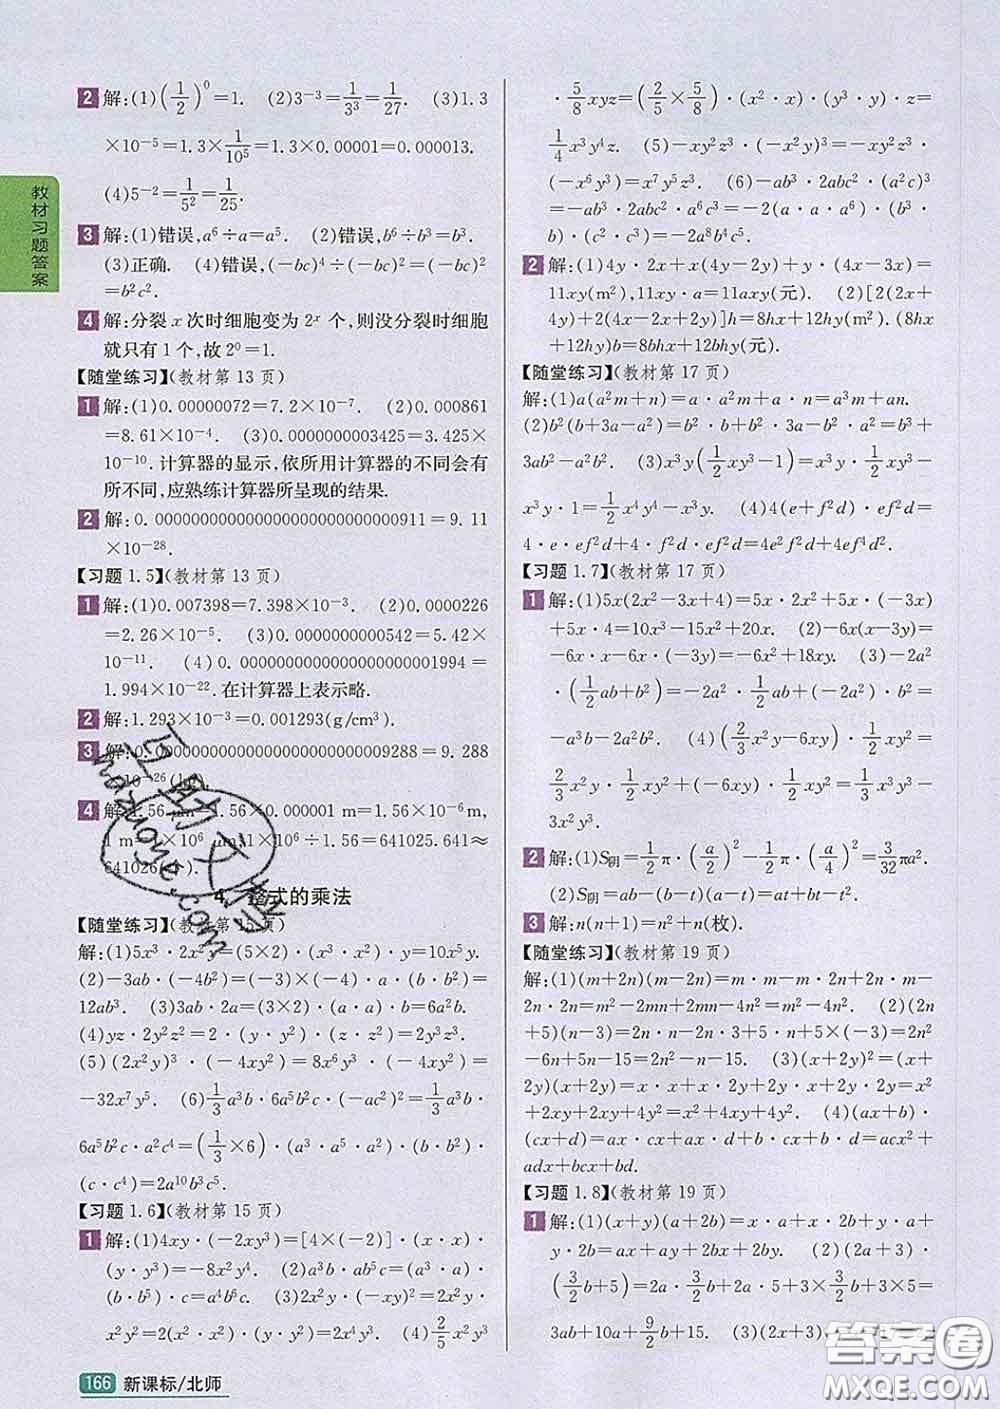 教材习题答案
2 解:(1)(1/2)^0=1. (2)3^{-3}=1/3^3=1/27. (3)1.3
×10^{-5}=1.3×1/10^5=1.3×0.00001=0.000013.
(4)5^{-2}=1/5^2=1/25.
3 解:(1)错误,a^6÷a=a^5. (2)错误,b^6÷b^3=b^3.
(3)正确. (4)错误,(-bc)^4÷(-bc)^2=(-bc)^2
=b^2c^2.
4 解:分裂 x 次时细胞变为 2^x 个,则没分裂时细胞
就只有 1 个,故 2^0=1.
【随堂练习】(教材第 13 页)
1 解:(1)0.00000072=7.2×10^{-7}. (2)0.000861
=8.61×10^{-4}. (3)0.0000000003425=3.425×
10^{-10}.计算器的显示,依所用计算器的不同会有
所不同,应熟练计算器所呈现的结果.
2 解:0.000000000000000000000000000911=9.11
×10^{-28}.
【习题 1.5】(教材第 13 页)
1 解:(1)0.007398=7.398×10^{-3}. (2)0.0000226
=2.26×10^{-5}. (3)0.0000000000542=5.42×
10^{-11}. (4)0.0000000000000000000001994=
1.994×10^{-22}.在计算器上表示略.
2 解:1.293×10^{-3}=0.001293(g/cm^3).
3 解:0.00000000000000000000000009288=9.288
×10^{-26}
4 1.56×0.000001 m=1.56×10^{-6}m,
1 m=10^6 μm, 1×10^6÷1.56=641025.641≈
641026
4 整式的乘法
【随堂练习】(教材第 15 页)
解:(1)5x^3·2x^2y=(5×2)·(x^3·x^2)·y=10x^5y.
(2)-3ab·(-4b^2)=(-3)×(-4)·a·(b·b^2)=
12ab^3. (3)3ab·2a=(3×2)·(a·a)·b=6a^2b.
(4)yz·2y^2z^2=2·(y·y^2)·(z·z^2)=2y^3z^3.
(5)(2x^2y)^3·(-4xy^2)=8x^6y^3·(-4xy^2)=
-32x^7y^5. (6)1/3a^3b·6a^5b^2c·(-ac^2)^2=1/3a^3b·
6a^5b^2c·a^2c^4=(1/3×6)·(a^3·a^5·a^2)·(b·b^2)·
(c·c^4)=2a^{10}b^3c^5.
【习题 1.6】(教材第 15 页)
1 解:(1)4xy·(-2xy^3)=[4×(-2)]·(x·x)·
(y·y^3)=-8x^2y^4. (2)a^3b·ab^5c=(a^3·a)·
(b·b^5)·c=a^4b^6c. (3)2x^2y·(-xy)^2=2x^2y·
x^2y^2=2(x^2·x^2)·(y·y^2)=2x^4y^3. (4)2/5x^2y^3
·5/8xyz=(2/5×5/8)·(x^2·x)·(y^3·y)·z=
1/4x^3y^4z. (5)-xy^2z^3·(-x^2y)^3=-xy^2z^3·
(-x^6y^3)=x^7y^5z^3. (6)-ab^3·2abc^2·(a^2c)^3
=-ab^3·2abc^2·a^6c^3=-2(a·a·a^6)·(b^3·
b)·(c^2·c^3)=-2a^8b^4c^5.
2 解:(1)4y·2x+x(4y-2y)+y·(4x-3x)=
11xy(m^2),11xy·a=11axy(元). (2)[2(2x+
4y)+2(4x-2x+2y)]h=8hx+12hy(m^2).(8hx
+12hy)b=8bhx+12bhy(元).
【随堂练习】(教材第 17 页)
解:(1)a(a^2m+n)=a·a^2m+a·n=a^3m+an.
(2)b^2(b+3a-a^2)=b^2·b+b^2·3a-b^2·a^2=b^3+
3ab^2-a^2b^2. (3)x^3y(1/2xy^3-1)=x^3y·1/2xy^3-
x^3y·1=1/2x^4y^4-x^3y. (4)4(e+f^2d)·ef^2d=
4·e·ef^2d+4·f^2d·ef^2d=4e^2f^2d+4ef^4d^2.
【习题 1.7】(教材第 17 页)
1 解:(1)5x(2x^2-3x+4)=5x·2x^2+5x·(-3x)
+5x·4=10x^3-15x^2+20x. (2)-6x(x-3y)=
-6x·x-6x·(-3y)=-6x^2+18xy. (3)-2a^2
·(1/2ab+b^2)=-2a^2·1/2ab+(-2a^2)·b^2=
-a^3b-2a^2b^2. (4)(2/3x^2y-6xy)·1/2xy^2=
2/3x^2y·1/2xy^2+(-6xy)·1/2xy^2=1/3x^3y^3-
3x^2y^3.
2 解:(1)S阴=1/2π·(a/2)^2-1/2π·(a/4)^2=3/32πa^2.
(2)S阴=ab-(b-t)(a-t)=at+bt-t^2.
3 解:n(n+1)=n^2+n(枚).
【随堂练习】(教材第 19 页)
解:(1)(m+2n)(m-2n)=m·m-m·2n+2n·m-
2n·2n=m^2-2mn+2mn-4n^2=m^2-4n^2. (2)(2n
+5)(n-3)=2n·n-2n·3+5·n+5×(-3)=2n^2
-6n+5n-15=2n^2-n-15. (3)(x+2y)^2=(x+
2y)(x+2y)=x·x+x·2y+2y·x+2y·2y=x^2
+2xy+2xy+4y^2=x^2+4xy+4y^2. (4)(ax+b)·
(cx+d)=ax·cx+ax·d+b·cx+b·d=acx^2+
adx+bcx+bd.
【习题 1.8】(教材第 19 页)
1 解:(1)(x+y)(a+2b)=x·a+x·2b+y·a+y
·2b=ax+ay+2bx+2by. (2)(2a+3)
·(3/2b+5)=2a·3/2b+2a·5+3×3/2b+3×5=
3ab+10a+9/2b+15. (3)(2x+3)
166 新课标/北师
答案圈
MXQE.COM